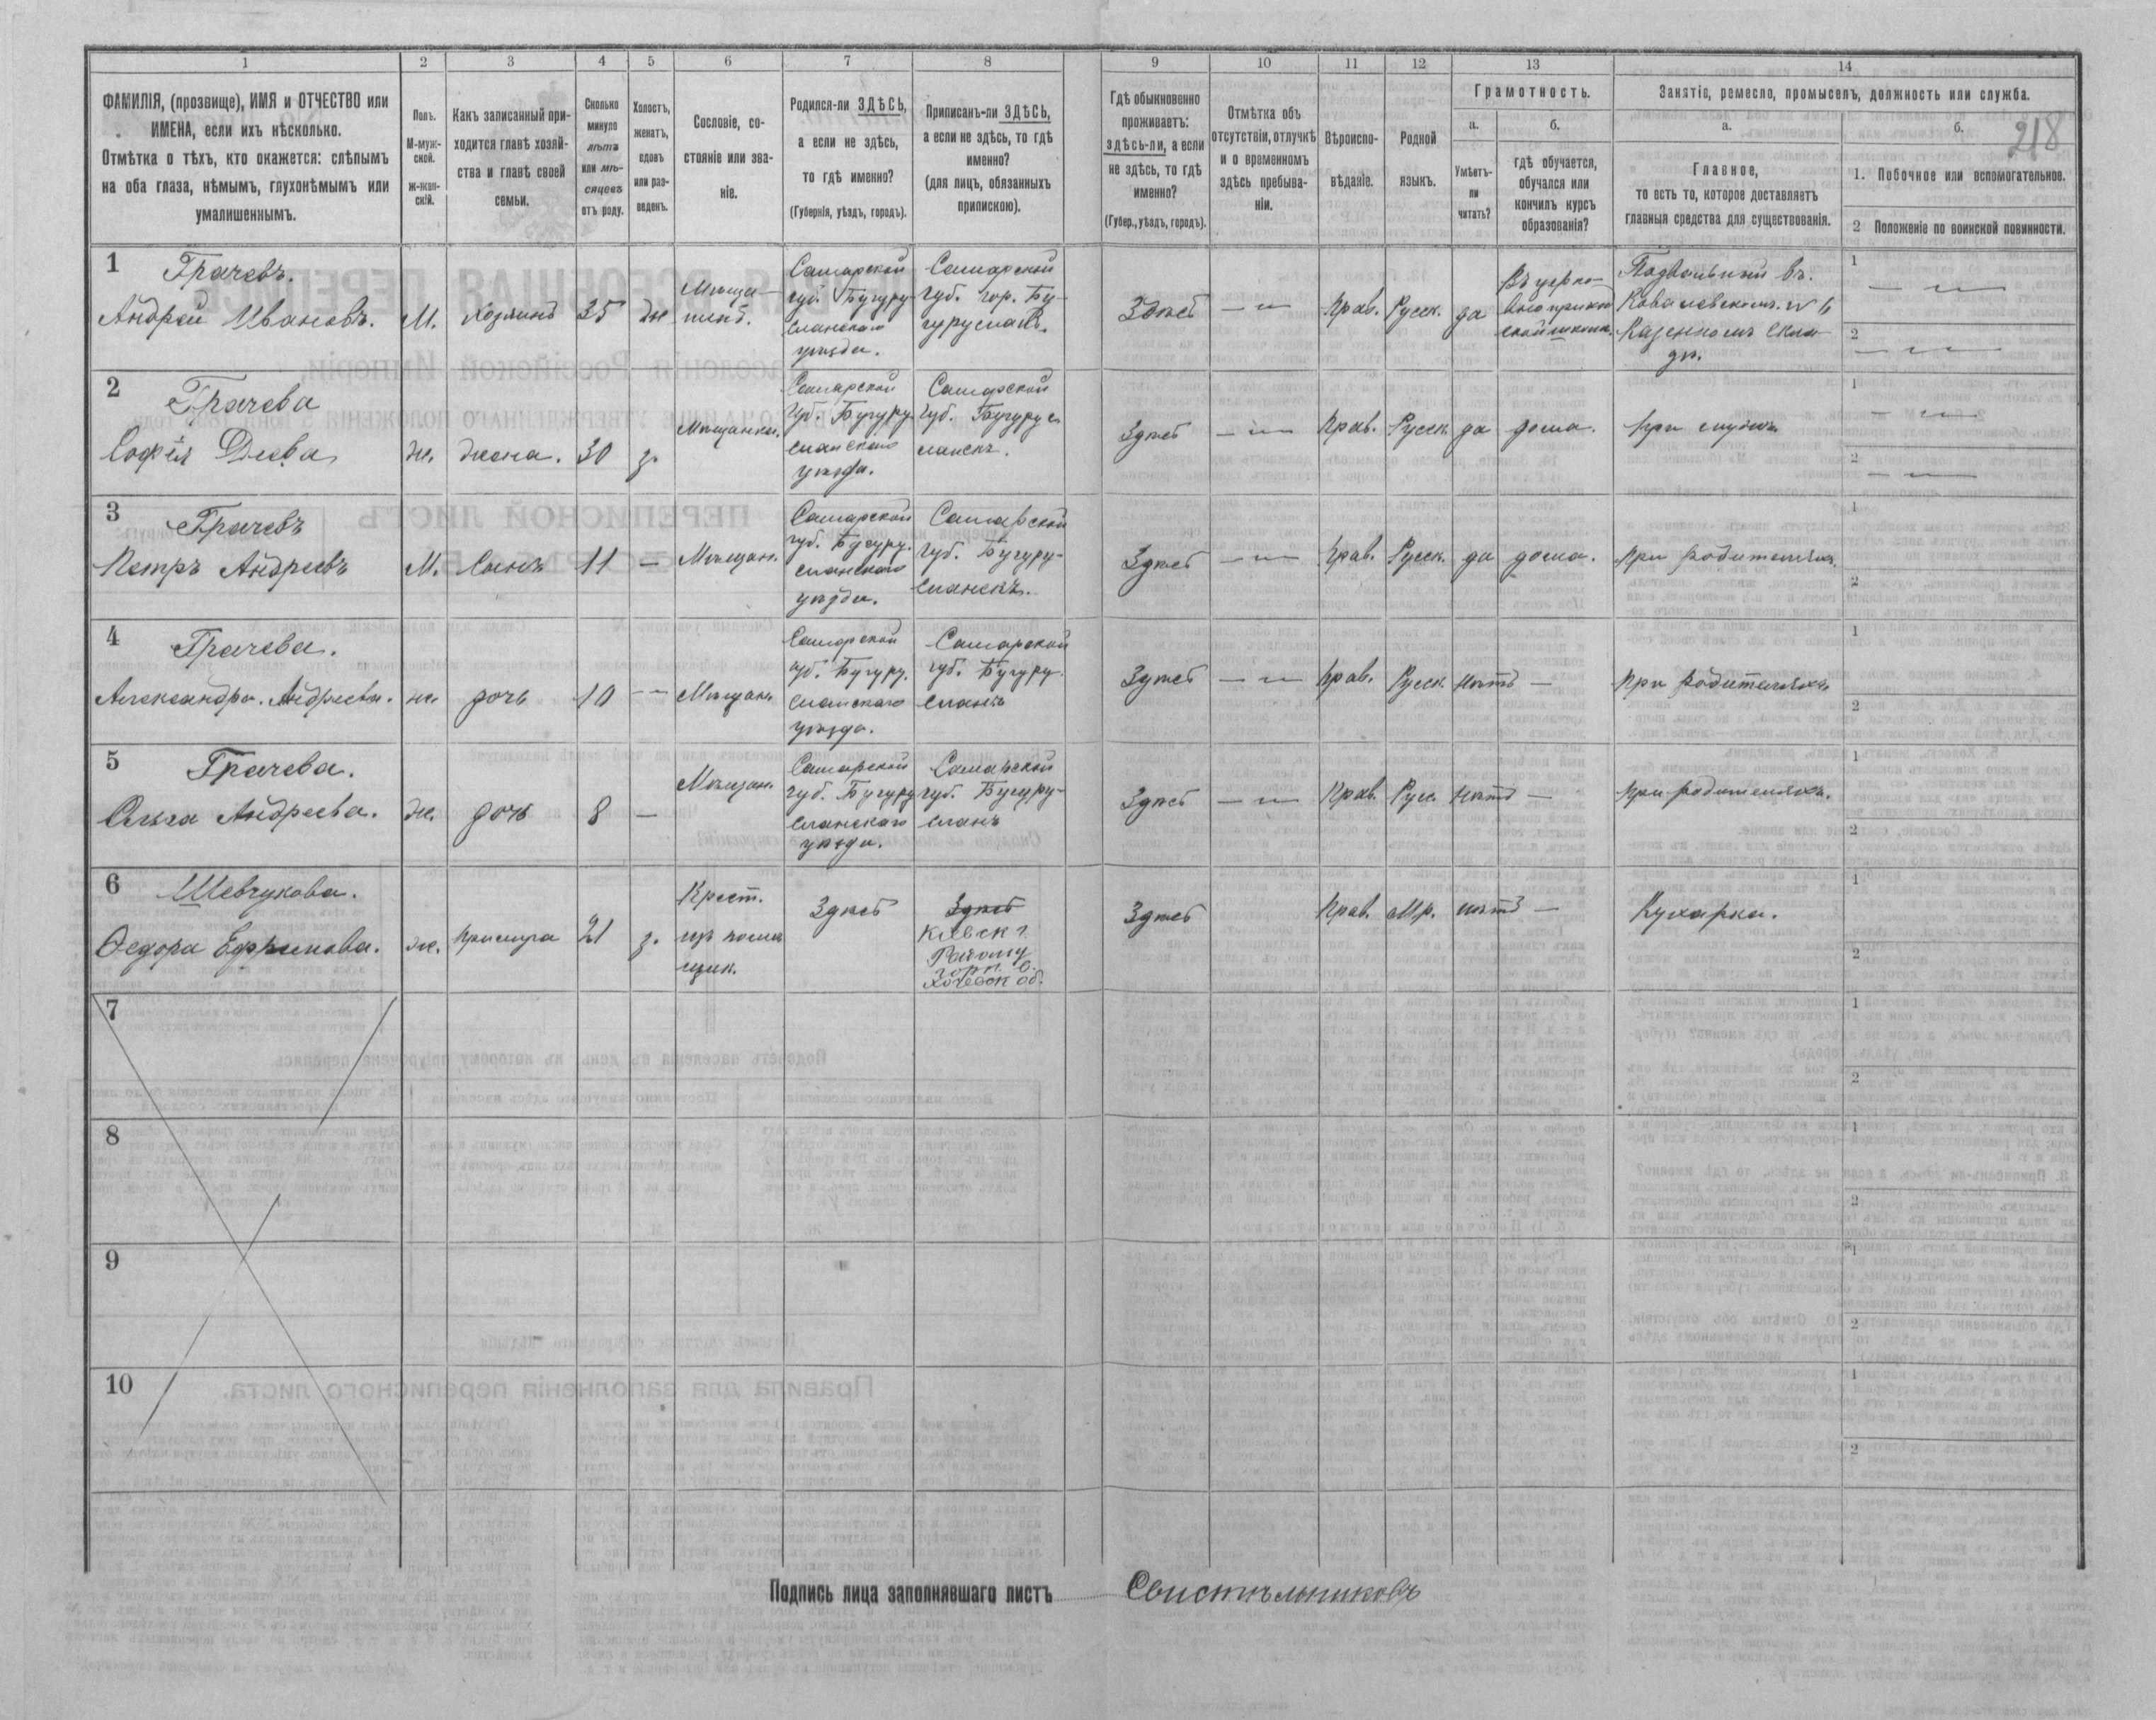 1 2 3 4 5 6 7 8 9 10 11 12 13 14
ФАМИЛІЯ, (прозвище), ИМЯ и ОТЧЕСТВО или
ИМЕНА, если ихъ нѣсколько.
Отмѣтка о тѣхъ, кто окажется: слѣпымъ
на оба глаза, нѣмымъ, глухонѣмымъ или
умалишеннымъ.
Полъ.
М-муж-
ской.
Ж-жен-
скій.
Какъ записанный при-
ходится главѣ хозяй-
ства и главѣ своей
семьи.
Сколько
минуло
лѣтъ
или мѣ-
сяцевъ
отъ роду.
Холостъ,
женатъ,
вдовъ
или раз-
веденъ.
Сословіе, со-
стояніе или зва-
ніе.
Родился-ли ЗДѢСЬ,
а если не здѣсь,
то гдѣ именно?
(Губернія, уѣздъ, городъ).
Приписанъ-ли ЗДѢСЬ,
а если не здѣсь, то гдѣ
именно?
(для лицъ, обязанныхъ
припискою).
Гдѣ обыкновенно
проживаетъ:
здѣсь-ли, а если
не здѣсь, то гдѣ
именно?
(Губер., уѣздъ, городъ).
Отмѣтка объ
отсутствіи, отлучкѣ
и о временномъ
здѣсь пребыва-
ніи.
Вѣроиспо-
вѣданіе.
Родной
языкъ.
Грамотность.
а.
Умѣетъ-
ли
читать?
б.
гдѣ обучается,
обучался или
кончилъ курсъ
образованія?
Занятіе, ремесло, промыселъ, должность или служба.
а.
Главное,
то есть то, которое доставляетъ
главныя средства для существованія.
б.
218
1. Побочное или вспомогательное.
2 Положеніе по воинской повинности.
1
Грачевъ.
Андрей Ивановъ.
М.
Хозяинъ
35
ж
Мѣща-
нинъ.
Самарской
губ. Бугуру-
сланскаго
уѣзда.
Самарской
губ. гор. Бу-
гурусланъ.
Здѣсь
— " —
Прав.
Русск.
да
Подвальный въ
Казенномъ скла-
дѣ.
1
— " —
2
— " —
2
Грачева
Софія
ж.
жена.
30
з.
Мѣщанка.
Самарской
губ. Бугуру-
сланскаго
уѣзда.
Самарской
губ. Бугуру с
ланскъ.
Здѣсь
— " —
Прав.
Русск.
да
дома.
При мужѣ
1
— " —
2
— " —
3
Грачевъ
Петръ Андреевъ
М.
Сынъ
11
—
Мѣщан.
Самарской
губ. Бугуру-
сланскаго
уѣзда.
Самарской
губ. Бугуру-
сланскъ.
Здѣсь
— " —
Прав.
Русск.
да
дома.
При родителяхъ.
1
2
4
Грачева.
Александра. Андреева.
ж.
дочь
10
—
Мѣщан.
Самарской
губ. Бугуру.
сланскаго
уѣзда.
Самарской
губ. Бугуру-
сланъ
Здѣсь
— " —
Прав.
Русск.
нѣтъ
—
При родителяхъ
1
2
5
Грачева.
Ольга Андреева.
ж.
дочь
8
—
Мѣщан.
Самарской
губ. Бугуру
сланскаго
уѣзда.
Самарской
губ. Бугуру-
сланъ
Здѣсь
— " —
Прав.
Русс.
нѣтъ
—
При родителяхъ.
1
2
6
Шевчукова.
Ѳедора Ефимова.
ж.
Прислуга
21
з.
Крест.
изъ помѣ
щик.
Здѣсь
Здѣсь
Кіевск г.
Здѣсь
Прав.
Мр.
нѣтъ
—
Кухарка.
1
2
7
1
2
8
1
2
9
1
2
10
1
2
Подпись лица заполнявшаго листъ